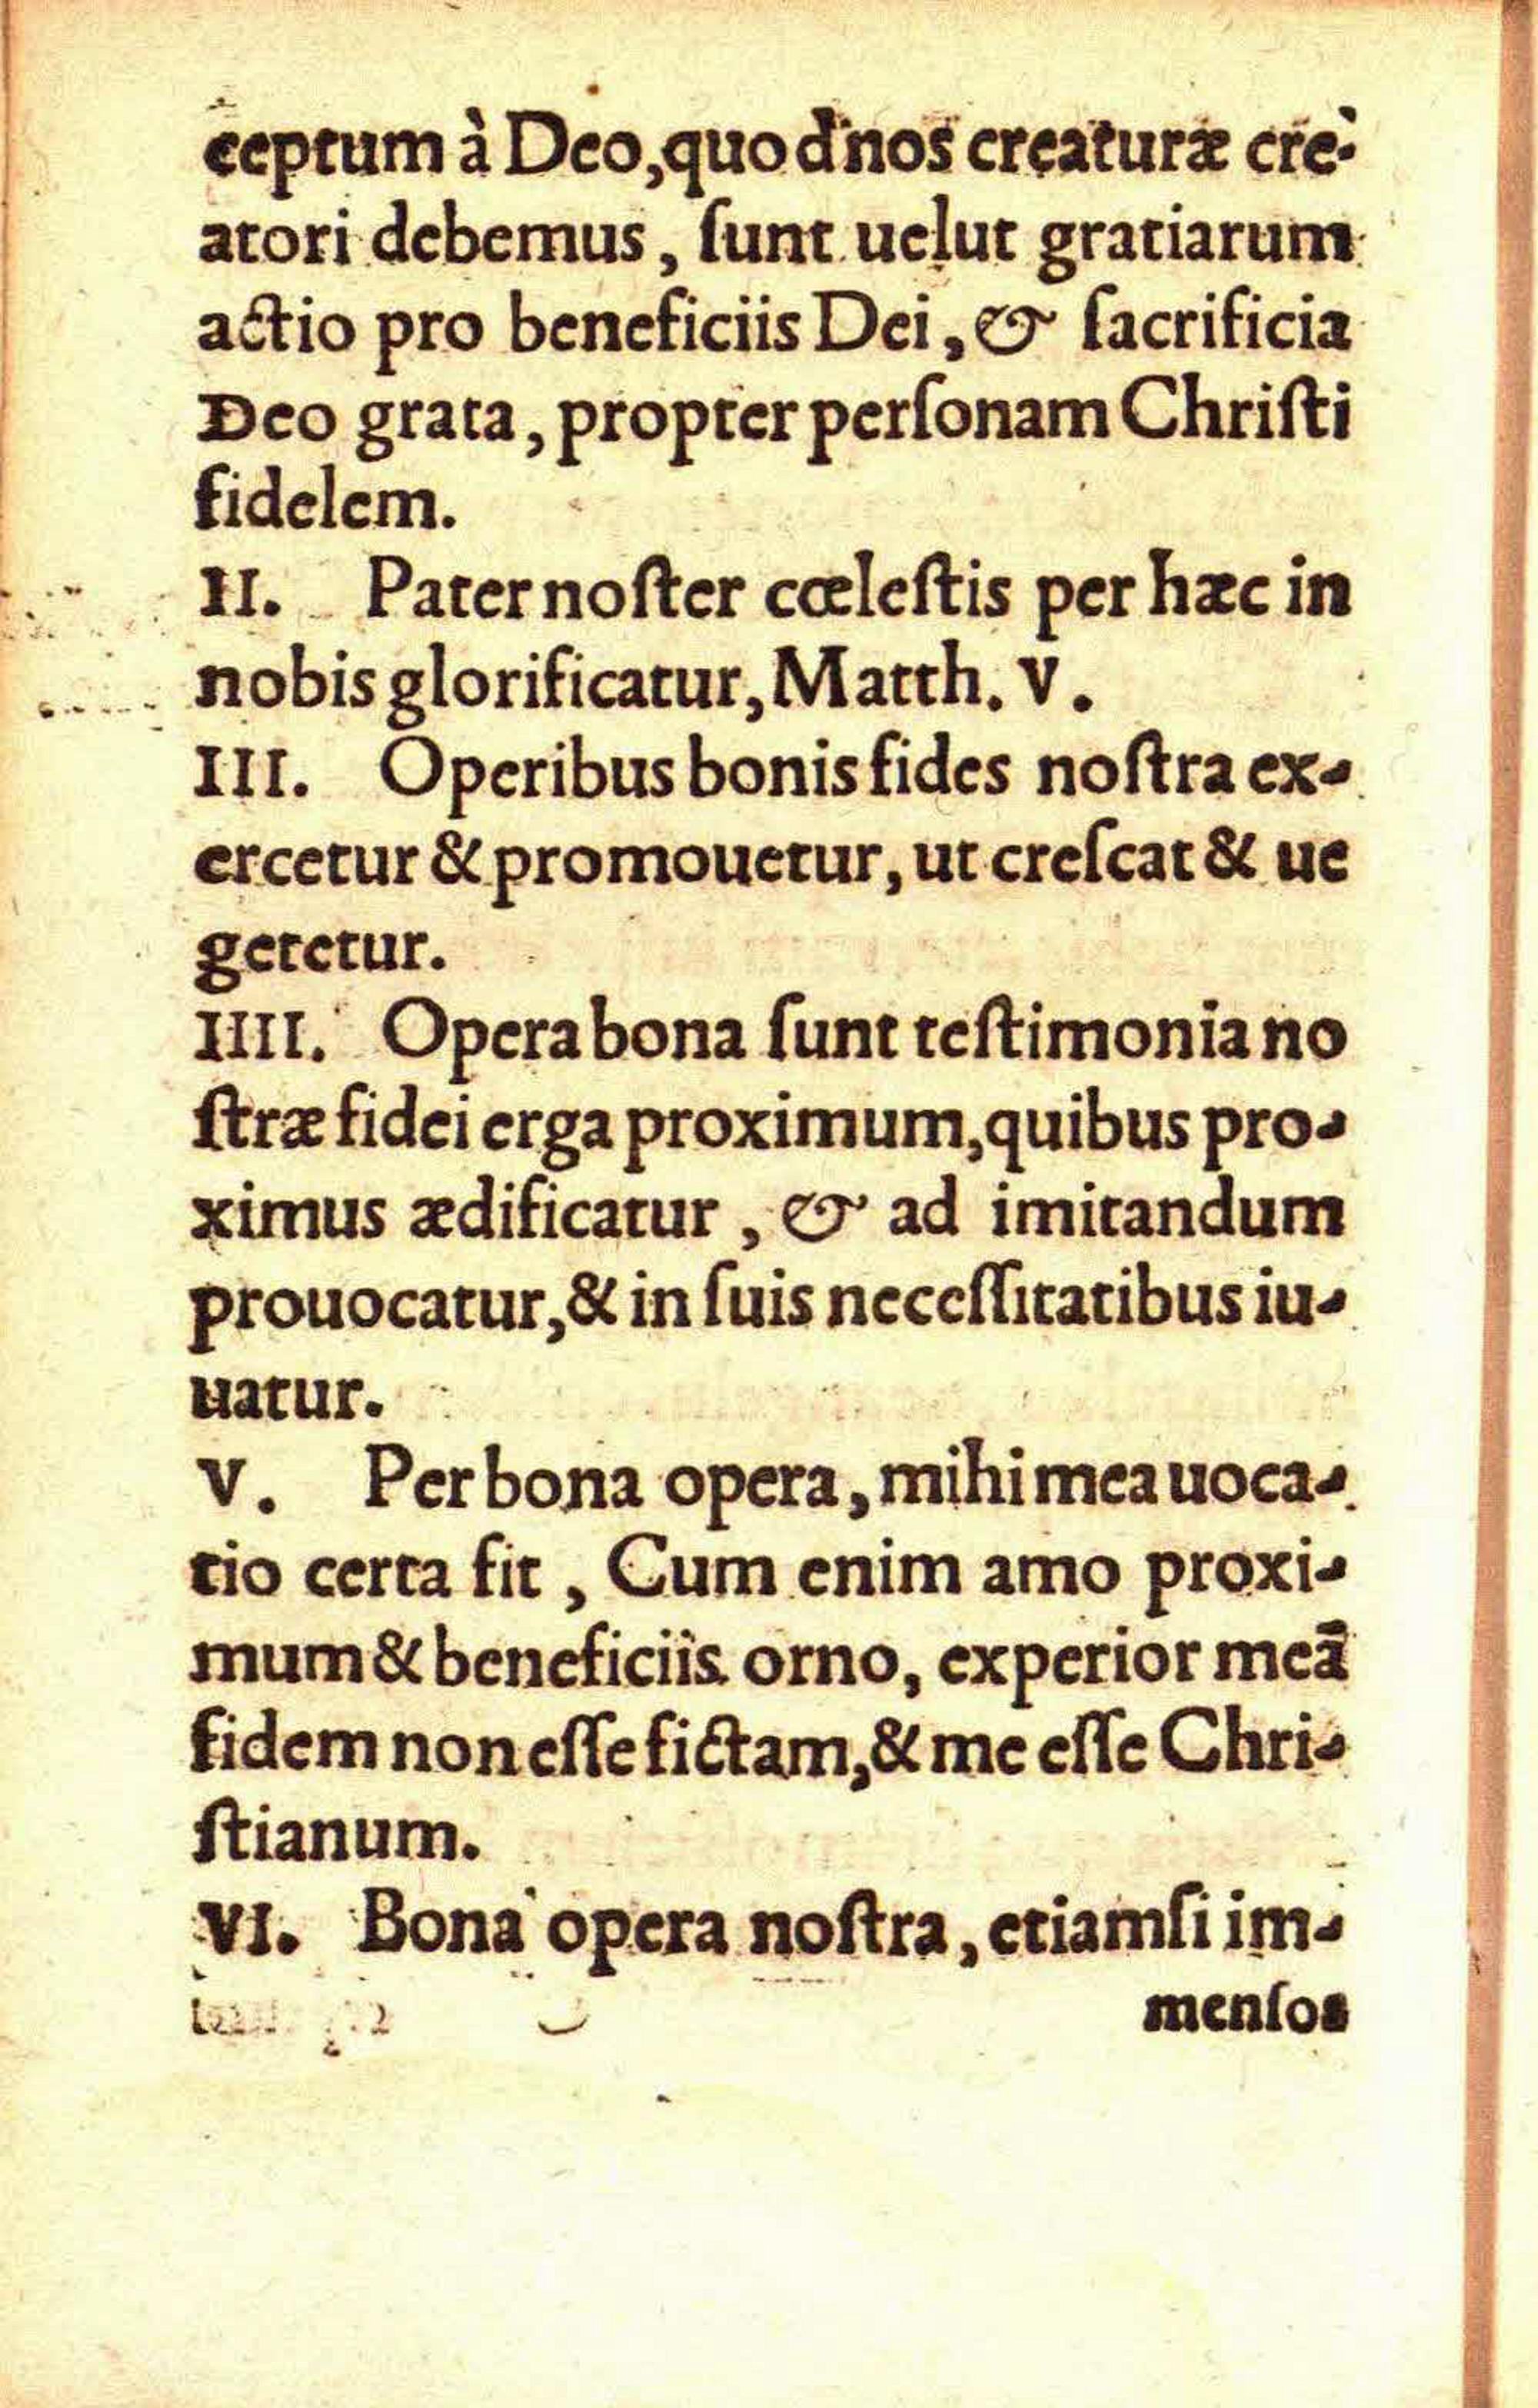 ceptum à Deo, quod nos creaturæ cre-
atori debemus, ſunt uelut gratiarum
actio pro beneficiis Dei, & ſacrificia
Deo grata, propter perſonam Chriſti
fidelem.
II. Pater noſter cœleſtis per hæc in
nobis glorificatur, Matth. V.
III. Operibus bonis fides noſtra ex-
ercetur & promouetur, ut creſcat & ue
getetur.
IIII. Opera bona ſunt teſtimonia no
ſtræ fidei erga proximum, quibus pro-
ximus ædificatur, & ad imitandum
prouocatur, & in ſuis neceſſitatibus iu-
uatur.
V. Per bona opera, mihi mea uoca-
tio certa fit, Cum enim amo proxi-
mum & beneficiis orno, experior meã
fidem non eſſe fictam, & me eſſe Chri-
ſtianum.
VI. Bona opera noſtra, etiamſi im-
menſos